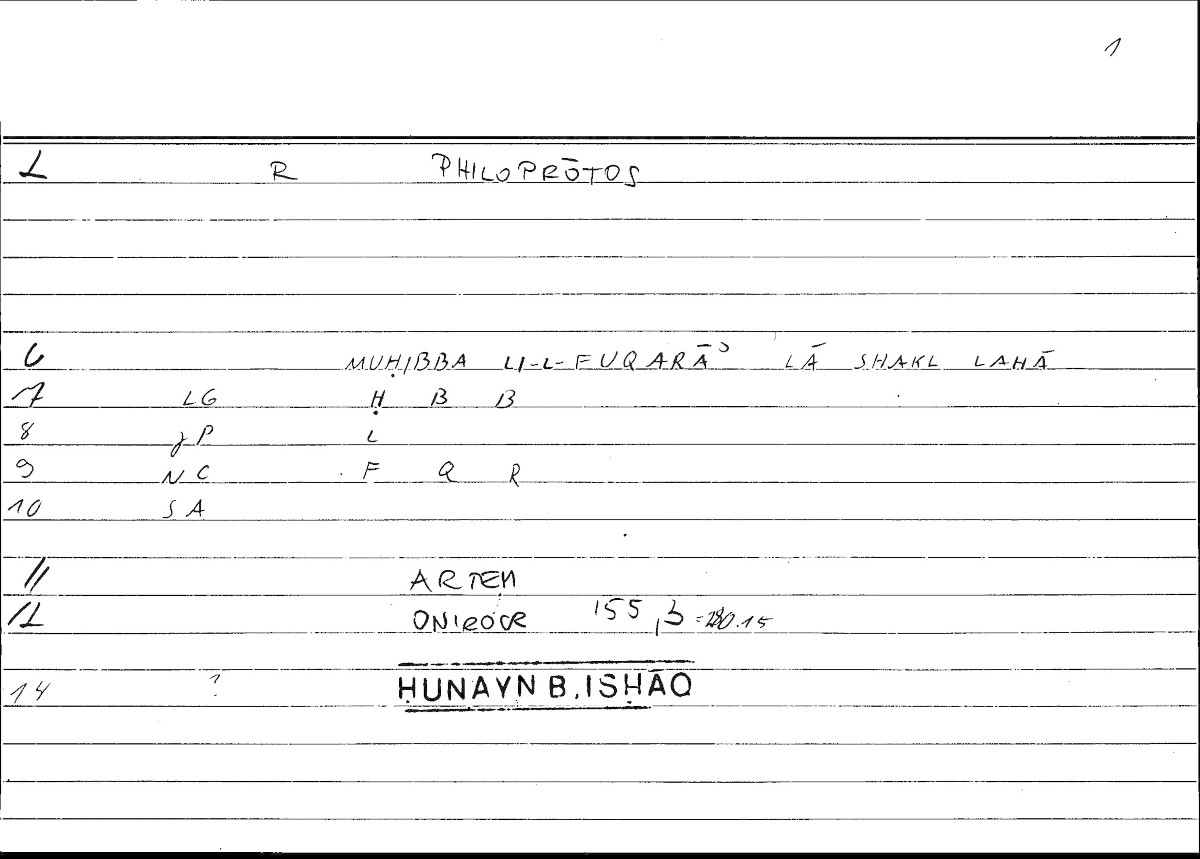 1
2 R PHILOPRŌTOS
6 MUḤIBBA LI-L-FUQARĀʾ LĀ SHAKL LAHĀ
7 LG Ḥ B B
8 JP L
9 NC F Q R
10 SA
11 ARTEM
12 ONIROCR 155,3 = 280.15
14 ? ḤUNAYN B. ISḤĀQ